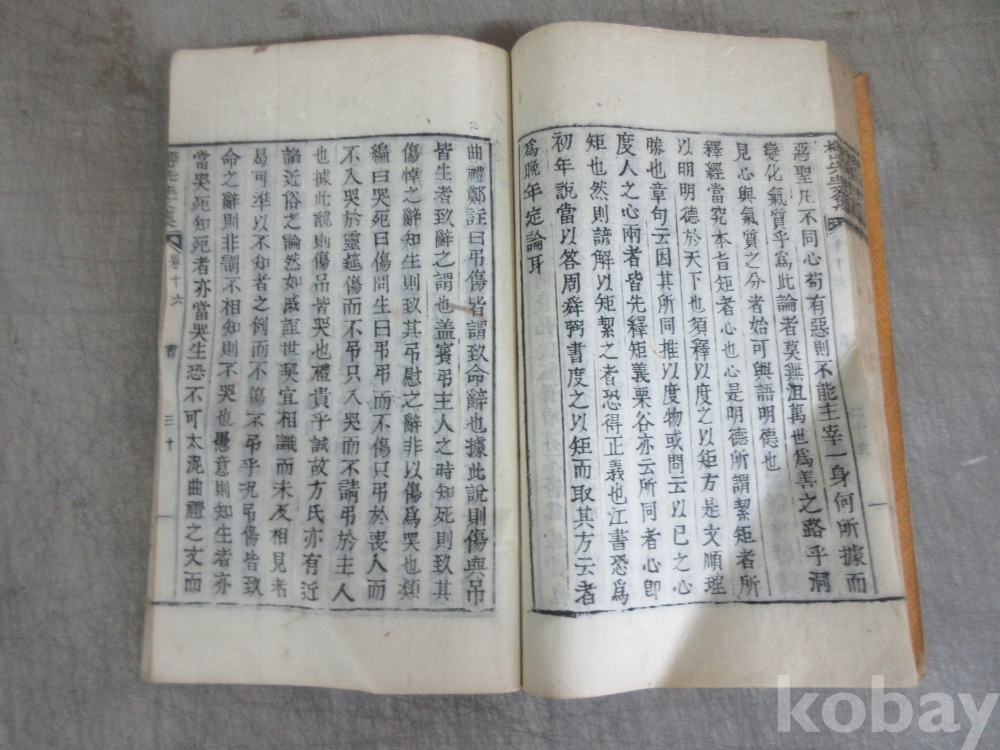 惡聖凡不同心苟有惡則不能主宰一身何所據而
變化氣質乎爲此論者莫無沮萬世爲善之路乎洞
見心與氣質之分者始可與語明德也
釋經當究本旨矩者心也心是明德所謂絜矩者所
以明明德於天下也須釋以度之以矩方是文順理
勝也章句云因其所同推以度物或問云以己之心
度人之心兩者皆先釋矩義栗谷亦云所同者心卽
矩也然則諺解以矩絜之者恐得正義也江書恐爲
初年說當以答周舜弼書度之以矩而取其方云者
爲晩年定論耳
曲禮鄭註曰弔傷皆謂致命辭也據此說則傷與弔
皆生者致辭之謂也盖賓弔主人之時知死則致其
傷悼之辭知生則致其弔慰之辭非以傷爲哭也類
編曰哭死曰傷問生曰弔弔而不傷只弔於喪人而
不入哭於靈筵傷而不弔只入哭而不請弔於主人
也據此說則傷弔皆哭也禮貴乎誠故方氏亦有近
諂近俗之論然如戚誼世契宜相識而未及相見者
曷可準以不知者之例而不傷不弔乎况弔傷皆致
命之辭則非謂不相知則不哭也愚意則知生者亦
當哭死知死者亦當哭生恐不可太泥曲禮之文而
卷十六
書
三十
kobay